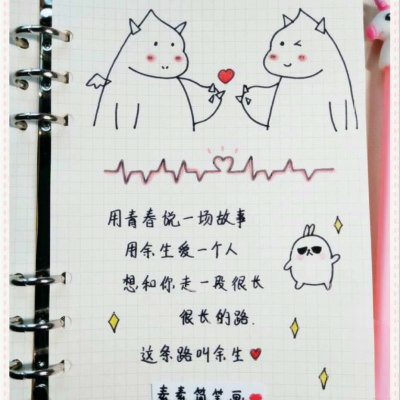 用青春说一场故事
用余生爱一个人
想和你走一段很长
很长的路.
这条路叫余生
素素简笔画